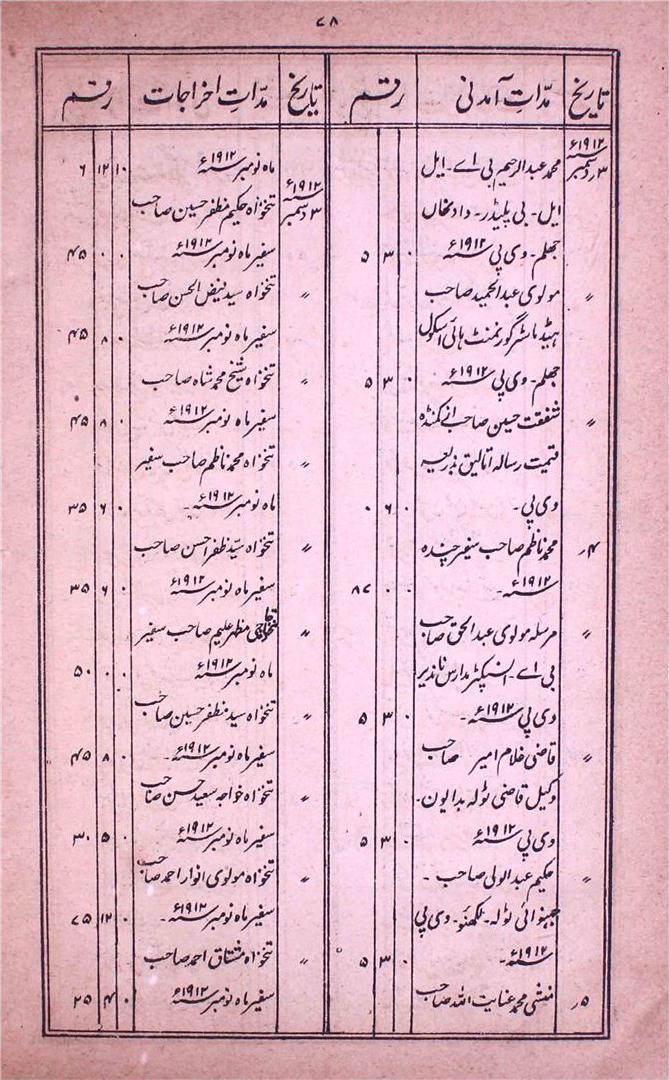 ۷۸
تاریخ مدّاتِ آمدنی رقم تاریخ مدّاتِ اخراجات رقم
۱۹۱۲ء
۳ دسمبر محمد عبدالرحیم بی اے۔ ایل
ایل۔ بی پلیڈر۔ دادنخاں
جھلم۔ وی پی ۱۹۱۲ء ۰ ۳ ۵
〃 مولوی عبدالحمید صاحب
ہیڈ ماسٹر گورنمنٹ ہائی اسکول
جھلم۔ وی پی ۱۹۱۲ء ۰ ۳ ۵
〃 شفقت حسین صاحب
قیمت رسالہ اتالیق بذریعہ
وی پی۔ ۰ ۶ ۰
۴ر محمد ناظم صاحب سفیر چندہ
۱۹۱۲ء ۔ ۰ ۰ ۸۷
〃 مرسلہ مولوی عبدالحق صاحب
بی اے۔ انسپکٹر مدارس ناندیر
وی پی ۱۹۱۲ء ۔ ۰ ۳ ۵
〃 قاضی غلام امیر صاحب
وکیل قاضی ٹولہ بدایون۔
وی پی ۱۹۱۲ء ۰ ۳ ۵
〃 حکیم عبدالولی صاحب ۔
جھنوائی ٹولہ۔ لکھنؤ۔ وی پی
۱۹۱۲ء ۔ ۰ ۳ ۵
۵ر منشی محمد عنایت اللہ صاحب
ماہ نومبر ۱۹۱۲ء ۱۰ ۱۲ ۶
۱۹۱۲ء
۳ دسمبر تنخواہ حکیم مظفر حسین صاحب
سفیر ماہ نومبر ۱۹۱۲ء ۰ ۰ ۴۵
〃 تنخواہ سید فیض الحسن صاحب
سفیر ماہ نومبر ۱۹۱۲ء ۰ ۸ ۴۵
〃 تنخواہ شیخ محمد شاہ صاحب
سفیر ماہ نومبر ۱۹۱۲ء ۰ ۸ ۴۵
〃 تنخواہ محمد ناظم صاحب سفیر
ماہ نومبر ۱۹۱۲ء ۔ ۰ ۶ ۳۵
〃 تنخواہ سیّد ظفر احسن صاحب
سفیر ماہ نومبر ۱۹۱۲ء ۰ ۶ ۳۵
〃 تنخواہ حاجی مظہر علیم صاحب سفیر
ماہ نومبر ۱۹۱۲ء ۰ ۰ ۵۰
〃 تنخواہ سید مظفر حسین صاحب
سفیر ماہ نومبر ۱۹۱۲ء ۔ ۰ ۸ ۴۵
〃 تنخواہ خواجہ سعید حسن صاحب
سفیر ماہ نومبر ۱۹۱۲ء ۰ ۵ ۳۰
〃 تنخواہ مولوی انوار احمد صاحب
سفیر ماہ نومبر ۱۹۱۲ء ۔ ۰ ۱۲ ۷۵
〃 تنخواہ مشتاق احمد صاحب
سفیر ماہ نومبر ۱۹۱۲ء ۰ ۴ ۲۵